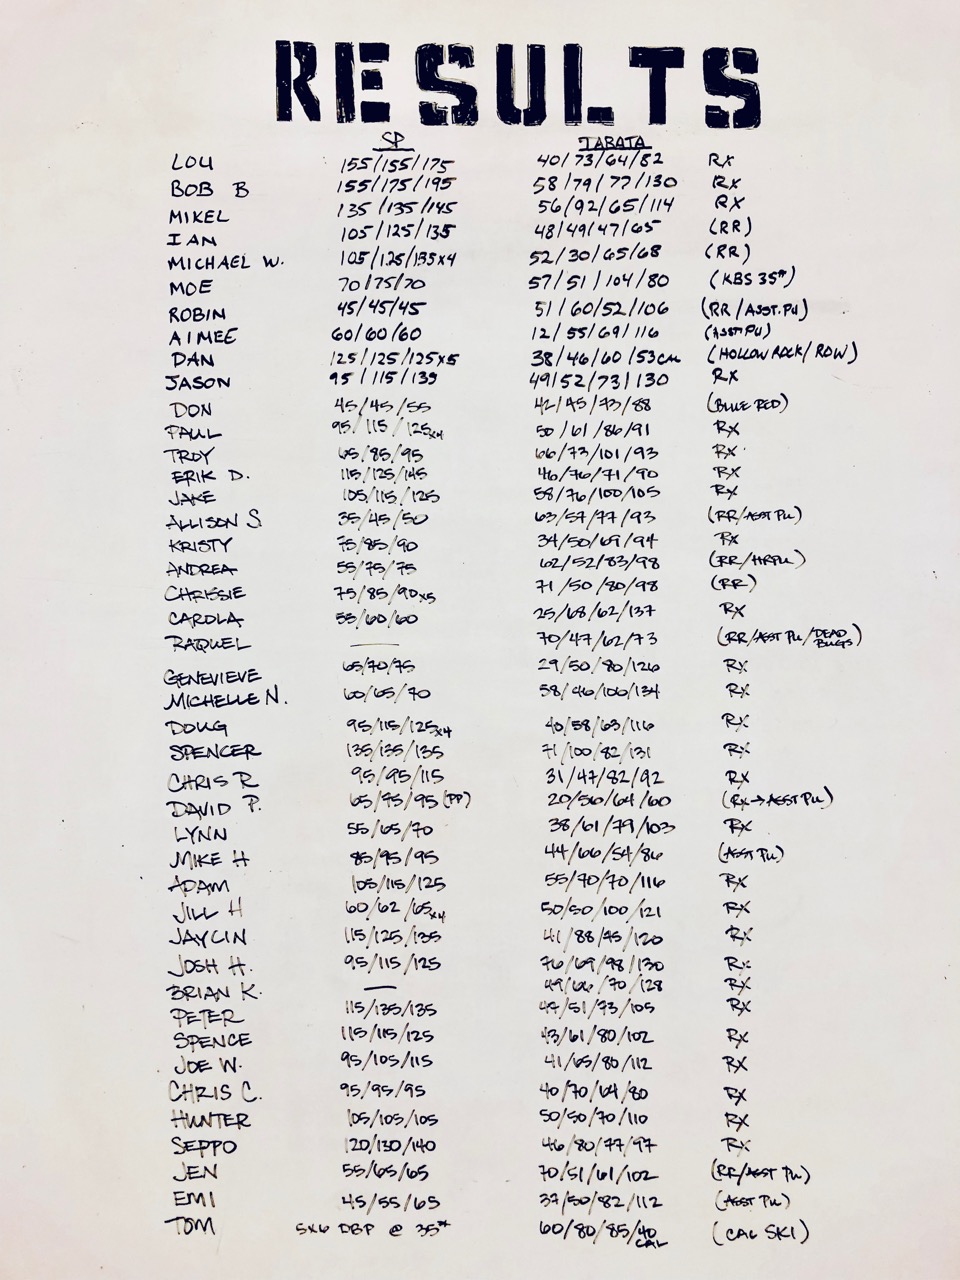 RESULTS
SP TABATA
LOU 155/155/175 40/73/64/82 RX
BOB B 155/175/195 58/79/77/130 RX
MIKEL 135/135/145 56/92/65/114 RX
IAN 105/125/135 48/49/47/65 (RR)
MICHAEL W. 105/125/135x4 52/30/65/68 (RR)
MOE 70/75/70 57/51/104/80 (KBS 35#)
ROBIN 45/45/45 51/60/52/106 (RR/ASST. PU)
AIMEE 60/60/60 12/55/69/116 (ASST PU)
DAN 125/125/125x5 38/46/60/53CAL (HOLLOW ROCK/ROW)
JASON 95/115/135 49/52/73/130 RX
DON 45/45/55 42/45/73/88 (BLUE RED)
PAUL 95/115/125x4 50/61/86/91 RX
TROY 65/85/95 66/73/101/93 RX
ERIK D. 115/125/145 46/76/71/90 RX
JAKE 105/115/125 58/76/100/105 RX
ALLISON S. 35/45/50 63/57/77/93 (RR/ASST PU)
KRISTY 75/85/90 34/50/69/94 RX
ANDREA 55/75/75 62/52/83/98 (RR/HRPU)
CHRISSIE 75/85/90x5 71/50/80/98 (RR)
CAROLA 55/60/60 25/68/62/137 RX
RAQUEL — 70/47/62/73 (RR/ASST PU/DEAD BUGS)
GENEVIEVE 65/70/75 29/50/80/126 RX
MICHELLE N. 60/65/70 58/46/106/134 RX
DOUG 95/115/125x4 40/58/63/116 RX
SPENCER 135/135/135 71/100/82/131 RX
CHRIS R 95/95/115 31/47/82/92 RX
DAVID P. 65/95/95 (PP) 20/56/64/60 (RX→ASST PU)
LYNN 55/65/70 38/61/79/103 RX
MIKE H 85/95/95 44/66/54/86 (ASST PU)
ADAM 105/115/125 55/70/70/116 RX
JILL H 60/62/65x4 50/50/100/121 RX
JAYLIN 115/125/135 41/88/45/120 RX
JOSH H. 95/115/125 76/69/98/130 RX
BRIAN K. — 49/66/70/128 RX
PETER 115/135/135 47/51/73/105 RX
SPENCE 115/115/125 43/61/80/102 RX
JOE W. 95/105/115 41/65/80/112 RX
CHRIS C. 95/95/95 40/70/64/80 RX
HUNTER 105/105/105 50/50/70/110 RX
SEPPO 120/130/140 46/80/77/97 RX
JEN 55/65/65 70/51/61/102 (RR/ASST PU)
EMI 45/55/65 37/50/82/112 (ASST PU)
TOM 5x6 DBP @ 35# 60/80/85/40 CAL (CAL SKI)